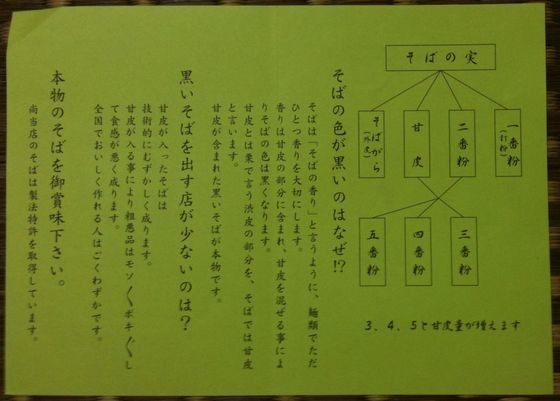 そばの実
一番粉
(打粉)
二番粉
甘皮
そばがら
(外皮)
三番粉
四番粉
五番粉
3、4、5と甘皮量が増えます
そばの色が黒いのはなぜ!?
そばは「そばの香り」と言うように、麺類でただ
ひとつ香りを大切にします。
香りは甘皮の部分に含まれ、甘皮を混ぜる事によ
りそばの色は黒くなります。
甘皮とは栗で言う渋皮の部分を、そばでは甘皮
と言います。
甘皮が含まれた黒いそばが本物です。
黒いそばを出す店が少ないのは?
甘皮が入ったそばは
技術的にむずかしく成ります。
甘皮が入る事により粗悪品はモソ〱ボキ〱し
て食感が悪く成ります。
全国でおいしく作れる人はごくわずかです。
本物のそばを御賞味下さい。
尚当店のそばは製法特許を取得しています。